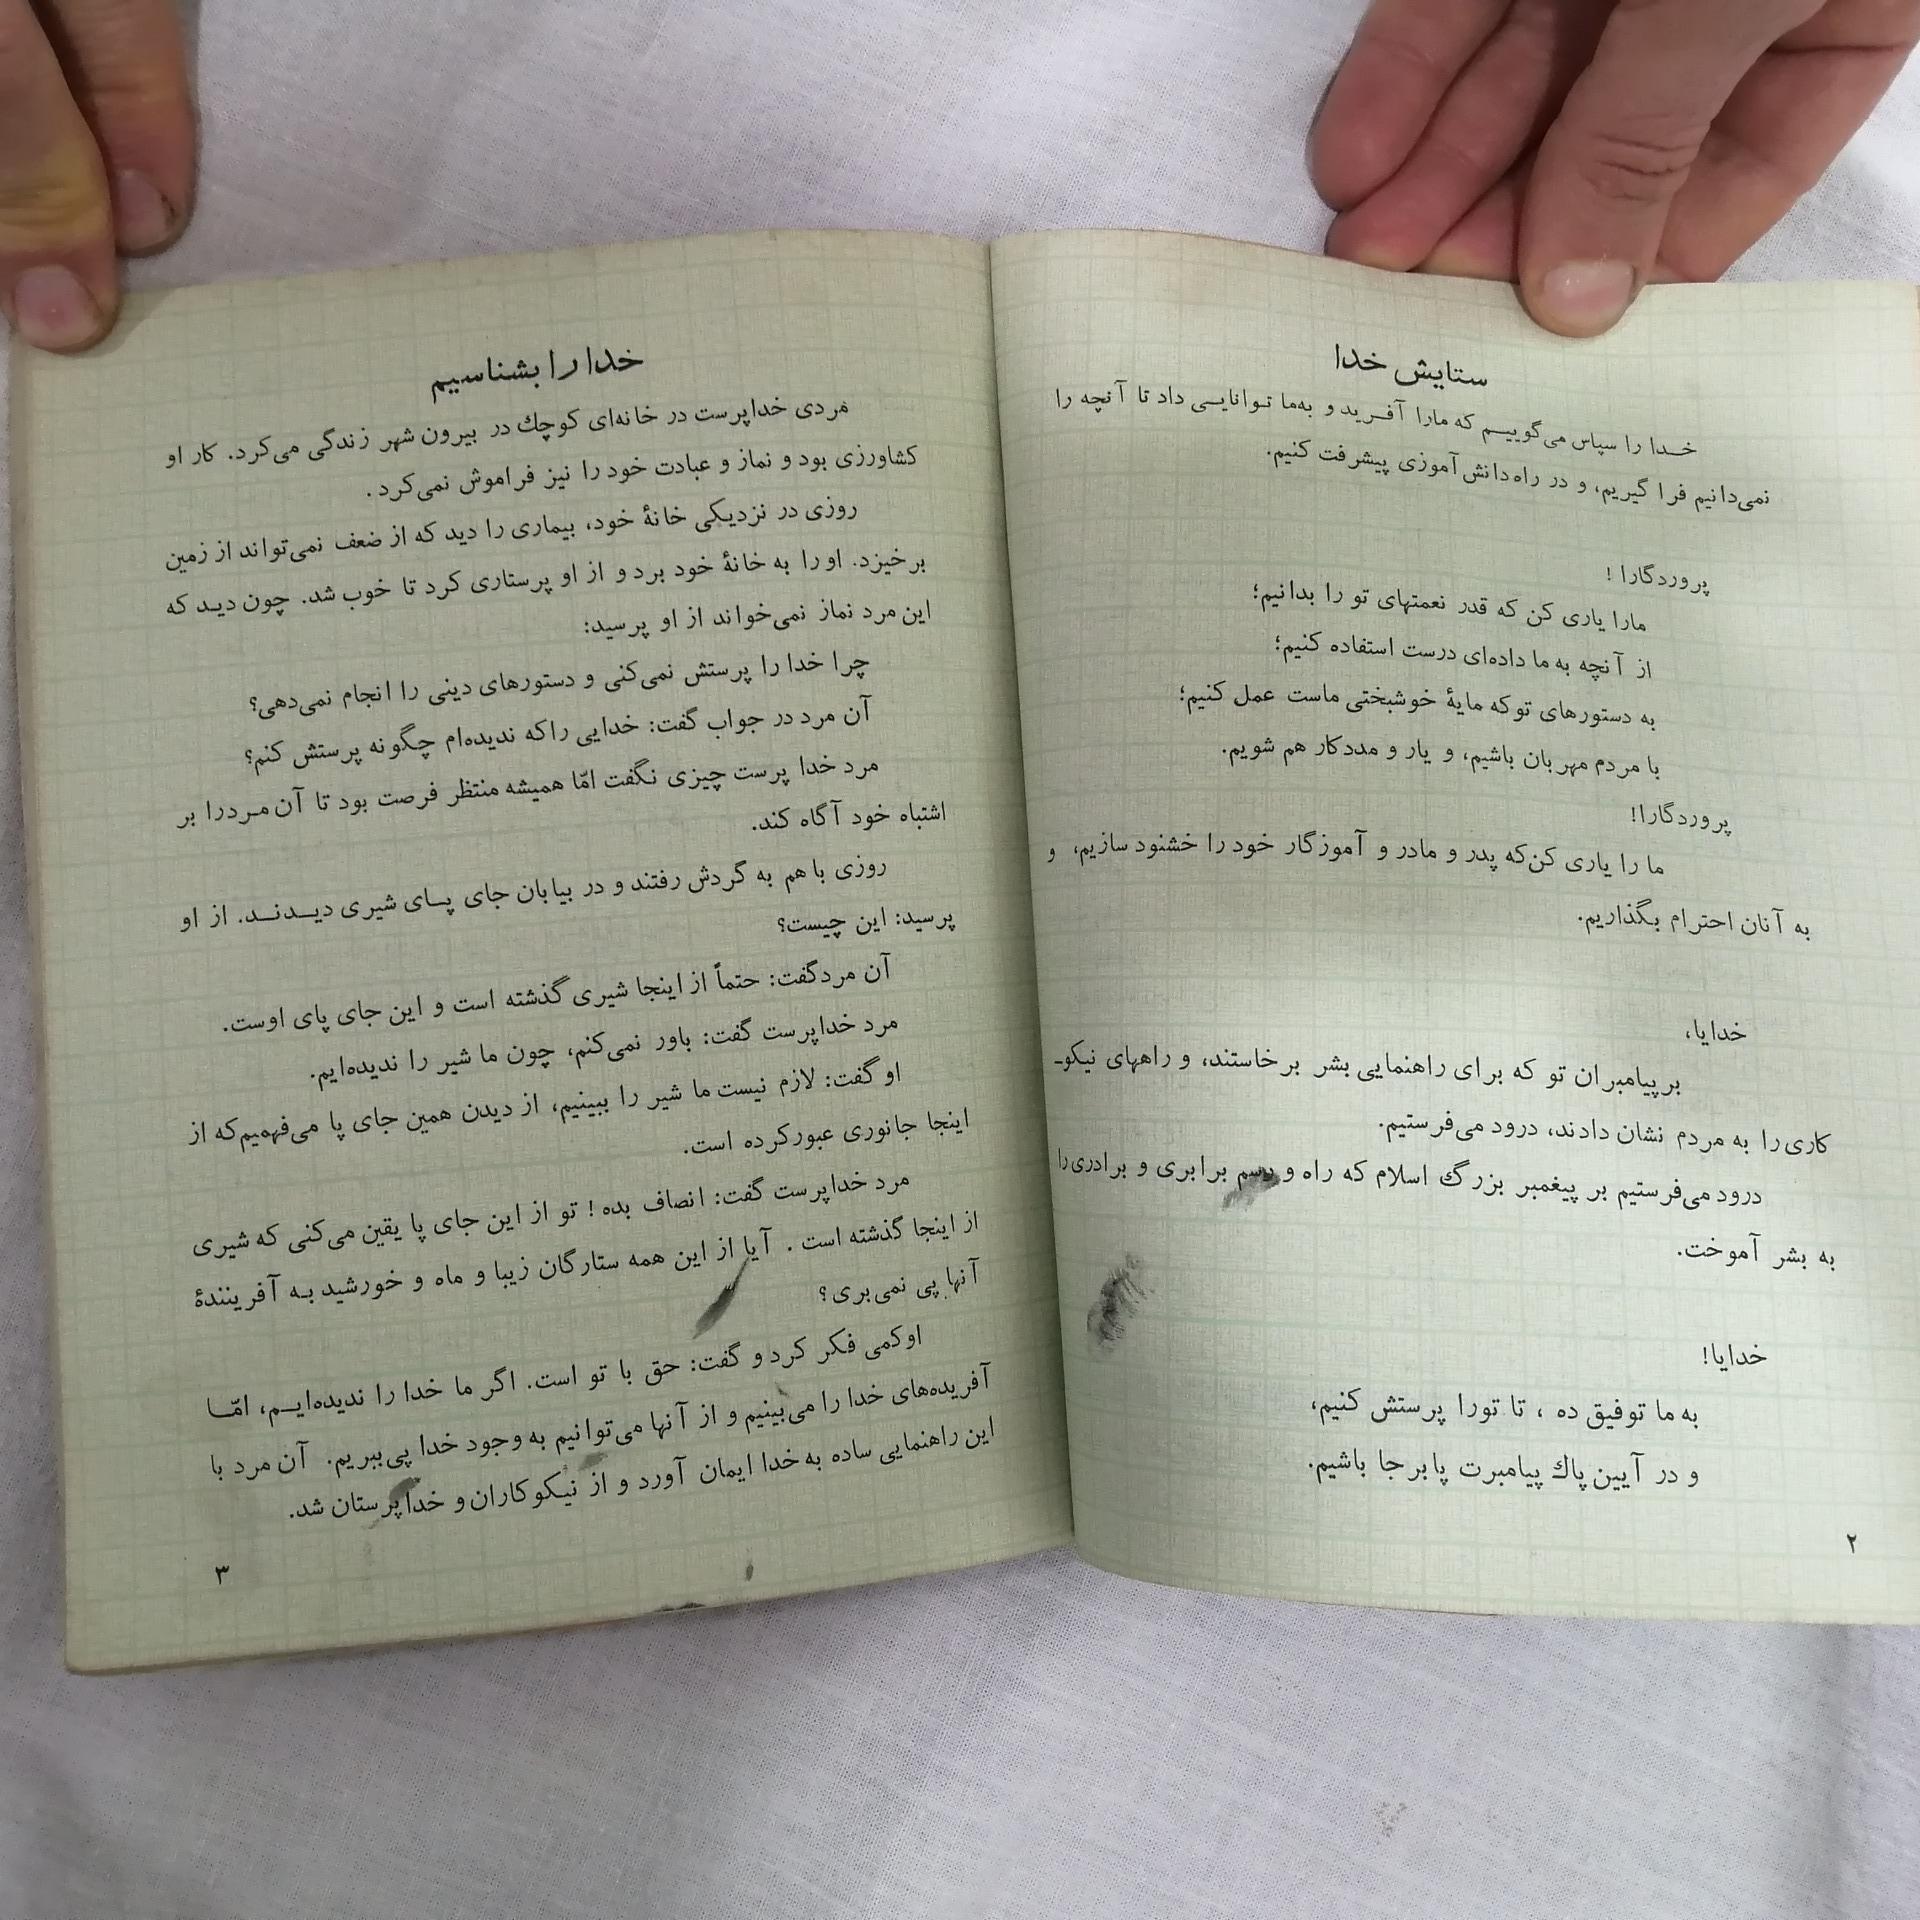 ستایش خدا
خـدا را سپاس می‌گوییـم که مارا آفـرید و به‌ما تـوانایـی داد تا آنچه را
نمی‌دانیم فرا گیریم، و در راه دانش‌آموزی پیشرفت کنیم.
پروردگارا !
مارا یاری کن که قدر نعمتهای تو را بدانیم؛
از آنچه به ما داده‌ای درست استفاده کنیم؛
به دستورهای تو که مایهٔ خوشبختی ماست عمل کنیم؛
با مردم مهربان باشیم، و یار و مددکار هم شویم.
پروردگارا!
ما را یاری کن‌که پدر و مادر و آموزگار خود را خشنود سازیم، و
به آنان احترام بگذاریم.
خدایا،
بر پیامبران تو که برای راهنمایی بشر برخاستند، و راههای نیکو-
کاری را به مردم نشان دادند، درود می‌فرستیم.
درود می‌فرستیم بر پیغمبر بزرگ اسلام که راه و رسم برابری و برادری را
به بشر آموخت.
خدایا!
به ما توفیق ده ، تا تورا پرستش کنیم،
و در آیین پاك پیامبرت پابرجا باشیم.
۲
خدا را بشناسیم
مردی خداپرست در خانه‌ای کوچك در بیرون شهر زندگی می‌کرد. کار او
کشاورزی بود و نماز و عبادت خود را نیز فراموش نمی‌کرد .
روزی در نزدیکی خانهٔ خود، بیماری را دید که از ضعف نمی‌تواند از زمین
برخیزد. او را به خانهٔ خود برد و از او پرستاری کرد تا خوب شد. چون دیـد که
این مرد نماز نمی‌خواند از او پرسید:
چرا خدا را پرستش نمی‌کنی و دستورهای دینی را انجام نمی‌دهی؟
آن مرد در جواب گفت: خدایی را که ندیده‌ام چگونه پرستش کنم؟
مرد خدا پرست چیزی نگفت امّا همیشه منتظر فرصت بود تا آن مـردرا بر
اشتباه خود آگاه کند.
روزی با هم به گردش رفتند و در بیابان جای پـای شیری دیـدنـد. از او
پرسید: این چیست؟
آن مردگفت: حتماً از اینجا شیری گذشته است و این جای پای اوست.
مرد خداپرست گفت: باور نمی‌کنم، چون ما شیر را ندیده‌ایم.
او گفت: لازم نیست ما شیر را ببینیم، از دیدن همین جای پا می‌فهمیم‌که از
اینجا جانوری عبورکرده است.
مرد خداپرست گفت: انصاف بده ! تو از این جای پا یقین می‌کنی که شیری
از اینجا گذشته است . آیا از این همه ستارگان زیبا و ماه و خورشید بـه آفرینندهٔ
آنها پی نمی‌بری؟
اوکمی فکر کرد و گفت: حق با تو است. اگر ما خدا را ندیده‌ایـم، امّـا
آفریده‌های خدا را می‌بینیم و از آنها می‌توانیم به وجود خدا پی‌ببریم. آن مرد با
این راهنمایی ساده به خدا ایمان آورد و از نیکوکاران و خداپرستان شد.
۳